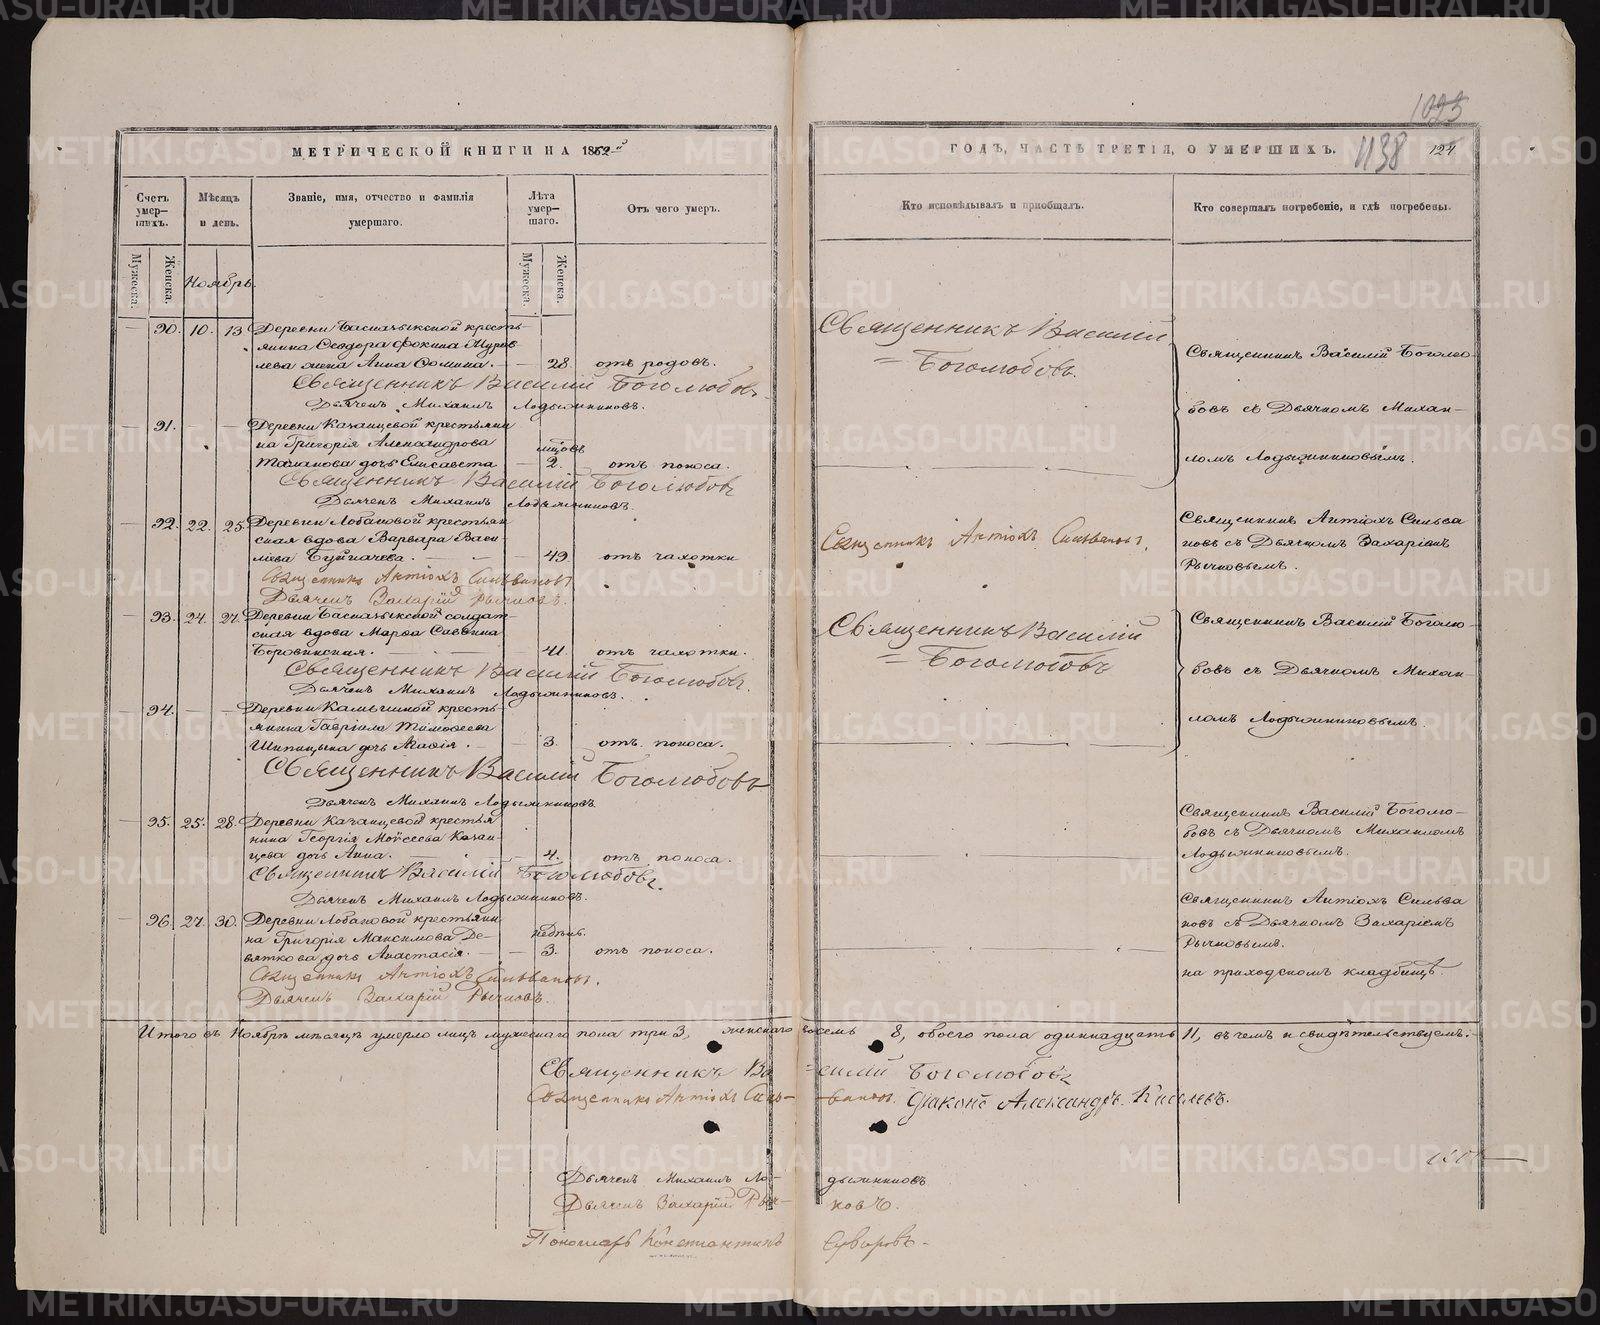 1025
1138
124
МЕТРИЧЕСКОЙ КНИГИ НА 1862-й
ГОДЪ, ЧАСТЬ ТРЕТІЯ, О УМЕРШИХЪ.
Счетъ умер-шихъ.
Мѣсяцъ и день.
Званіе, имя, отчество и фамилія умершаго.
Лѣта умер-шаго.
Отъ чего умеръ.
Кто исповѣдывалъ и пріобщалъ.
Кто совершалъ погребеніе, и гдѣ погребены.
Мужеска.
Женска.
Ноябрь.
Мужеска.
Женска.
90. 10. 13 Деревни Баспазыкской кресть-
янина Ѳеодора Фокина Журав
лева жена Анна Ѳомина. 28. отъ родовъ.
Священникъ Василій Боголюбовъ
Дьячекъ Михаилъ Лодыжниковъ.
Священникъ Василій
= Боголюбовъ.
Священникъ Василій Боголю-
бовъ съ Дьячкомъ Михаи-
ломъ Лодыжниковымъ.
91. Деревни Казанцевой крестьяни
на Григорія Александрова
дочь Елисавета 2. отъ поноса.
Священникъ Василій Боголюбовъ
Дьячекъ Михаилъ Лодыжниковъ.
92. 22. 25. Деревни Лобановой крестьян
ская вдова Варвара Васи
ліева 49 отъ чахотки
Священникъ Антіохъ Сильвановъ
Дьячекъ Захарій Рычковъ.
Священникъ Антіохъ Сильвановъ.
Священникъ Антіохъ Сильва
новъ съ Дьячкомъ Захаріемъ
Рычковымъ.
93. 24. 27. Деревни Баспазыкской солдат-
ская вдова Марѳа Саввина
Боровинская. 41. отъ чахотки.
Священникъ Василій Боголюбовъ.
Дьячекъ Михаилъ Лодыжниковъ.
Священникъ Василій
= Боголюбовъ
Священникъ Василій Боголю-
бовъ съ Дьячкомъ Михаи-
ломъ Лодыжниковымъ.
94. Деревни Камышной кресть-
янина Гавріила Тимоѳеева
Шипицына дочь Агаѳія. 3. отъ поноса.
Священникъ Василій Боголюбовъ
Дьячекъ Михаилъ Лодыжниковъ
95. 25. 28. Деревни Казанцевой крестья
нина Георгія Моисеева Казан-
цева дочь Анна. 4. отъ поноса.
Священникъ Василій Боголюбовъ.
Дьячекъ Михаилъ Лодыжниковъ.
Священникъ Василій Боголю-
бовъ съ Дьячкомъ Михаиломъ
Лодыжниковымъ.
96. 27. 30. Деревни Лобановой крестьяни
на Григорія Максимова Де-
вяткова дочь Анастасія. недѣль. 3. отъ поноса.
Священникъ Антіохъ Сильвановъ.
Дьячекъ Захарій Рычковъ.
Священникъ Антіохъ Сильва
новъ съ Дьячкомъ Захаріемъ
Рычковымъ.
на приходскомъ кладбищѣ.
Итого въ Ноябрѣ мѣсяцѣ умерло лицъ мужескаго пола три 3, женскаго восемь 8, обоего пола одиннадцать 11, въ чемъ и свидѣтельствуемъ:
Священникъ Василій Боголюбовъ
Священникъ Антіохъ Сильвановъ. Діаконъ Александръ Киселевъ.
Дьячекъ Михаилъ Лодыжниковъ
Дьячекъ Захарій Рычковъ.
Пономарь Константинъ Суворовъ.
METRIKI.GASO-URAL.RU